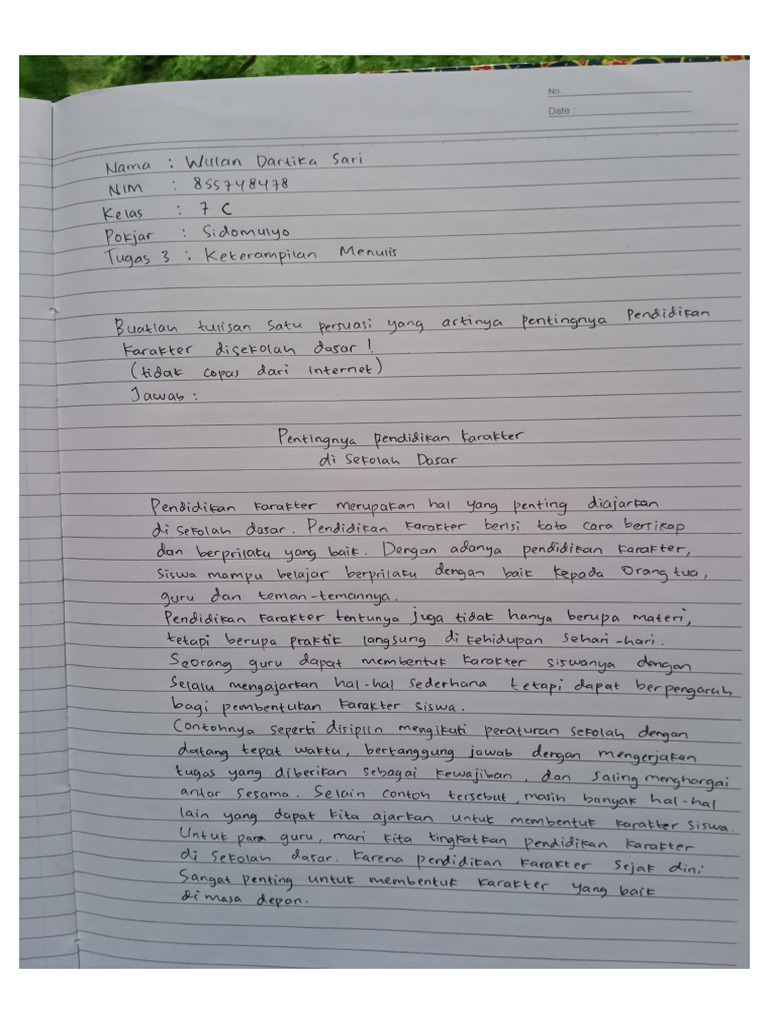 No.
Date :
Nama : Wulan Dartika Sari
NIM : 855748478
Kelas : 7 C
Pokjar : Sidomulyo
Tugas 3 : Keterampilan Menulis
Buatlah tulisan satu persuasi yang artinya pentingnya Pendidikan
Karakter disekolah dasar !
(tidak copas dari internet)
Jawab :
Pentingnya pendidikan karakter
di Sekolah Dasar
Pendidikan karakter merupakan hal yang penting diajarkan
di sekolah dasar. Pendidikan karakter berisi tata cara bersikap
dan berprilaku yang baik. Dengan adanya pendidikan karakter,
siswa mampu belajar berprilaku dengan baik kepada orang tua,
guru dan teman-temannya.
Pendidikan karakter tentunya juga tidak hanya berupa materi,
tetapi berupa praktik langsung di kehidupan sehari-hari.
Seorang guru dapat membentuk karakter siswanya dengan
selalu mengajarkan hal-hal sederhana tetapi dapat berpengaruh
bagi pembentukan karakter siswa.
Contohnya seperti disiplin mengikuti peraturan sekolah dengan
datang tepat waktu, bertanggung jawab dengan mengerjakan
tugas yang diberikan sebagai kewajiban, dan saling menghargai
antar sesama. Selain contoh tersebut, masih banyak hal-hal
lain yang dapat kita ajarkan untuk membentuk karakter siswa.
Untuk para guru, mari kita tingkatkan pendidikan karakter
di sekolah dasar. Karena pendidikan karakter sejak dini
sangat penting untuk membentuk karakter yang baik
di masa depan.